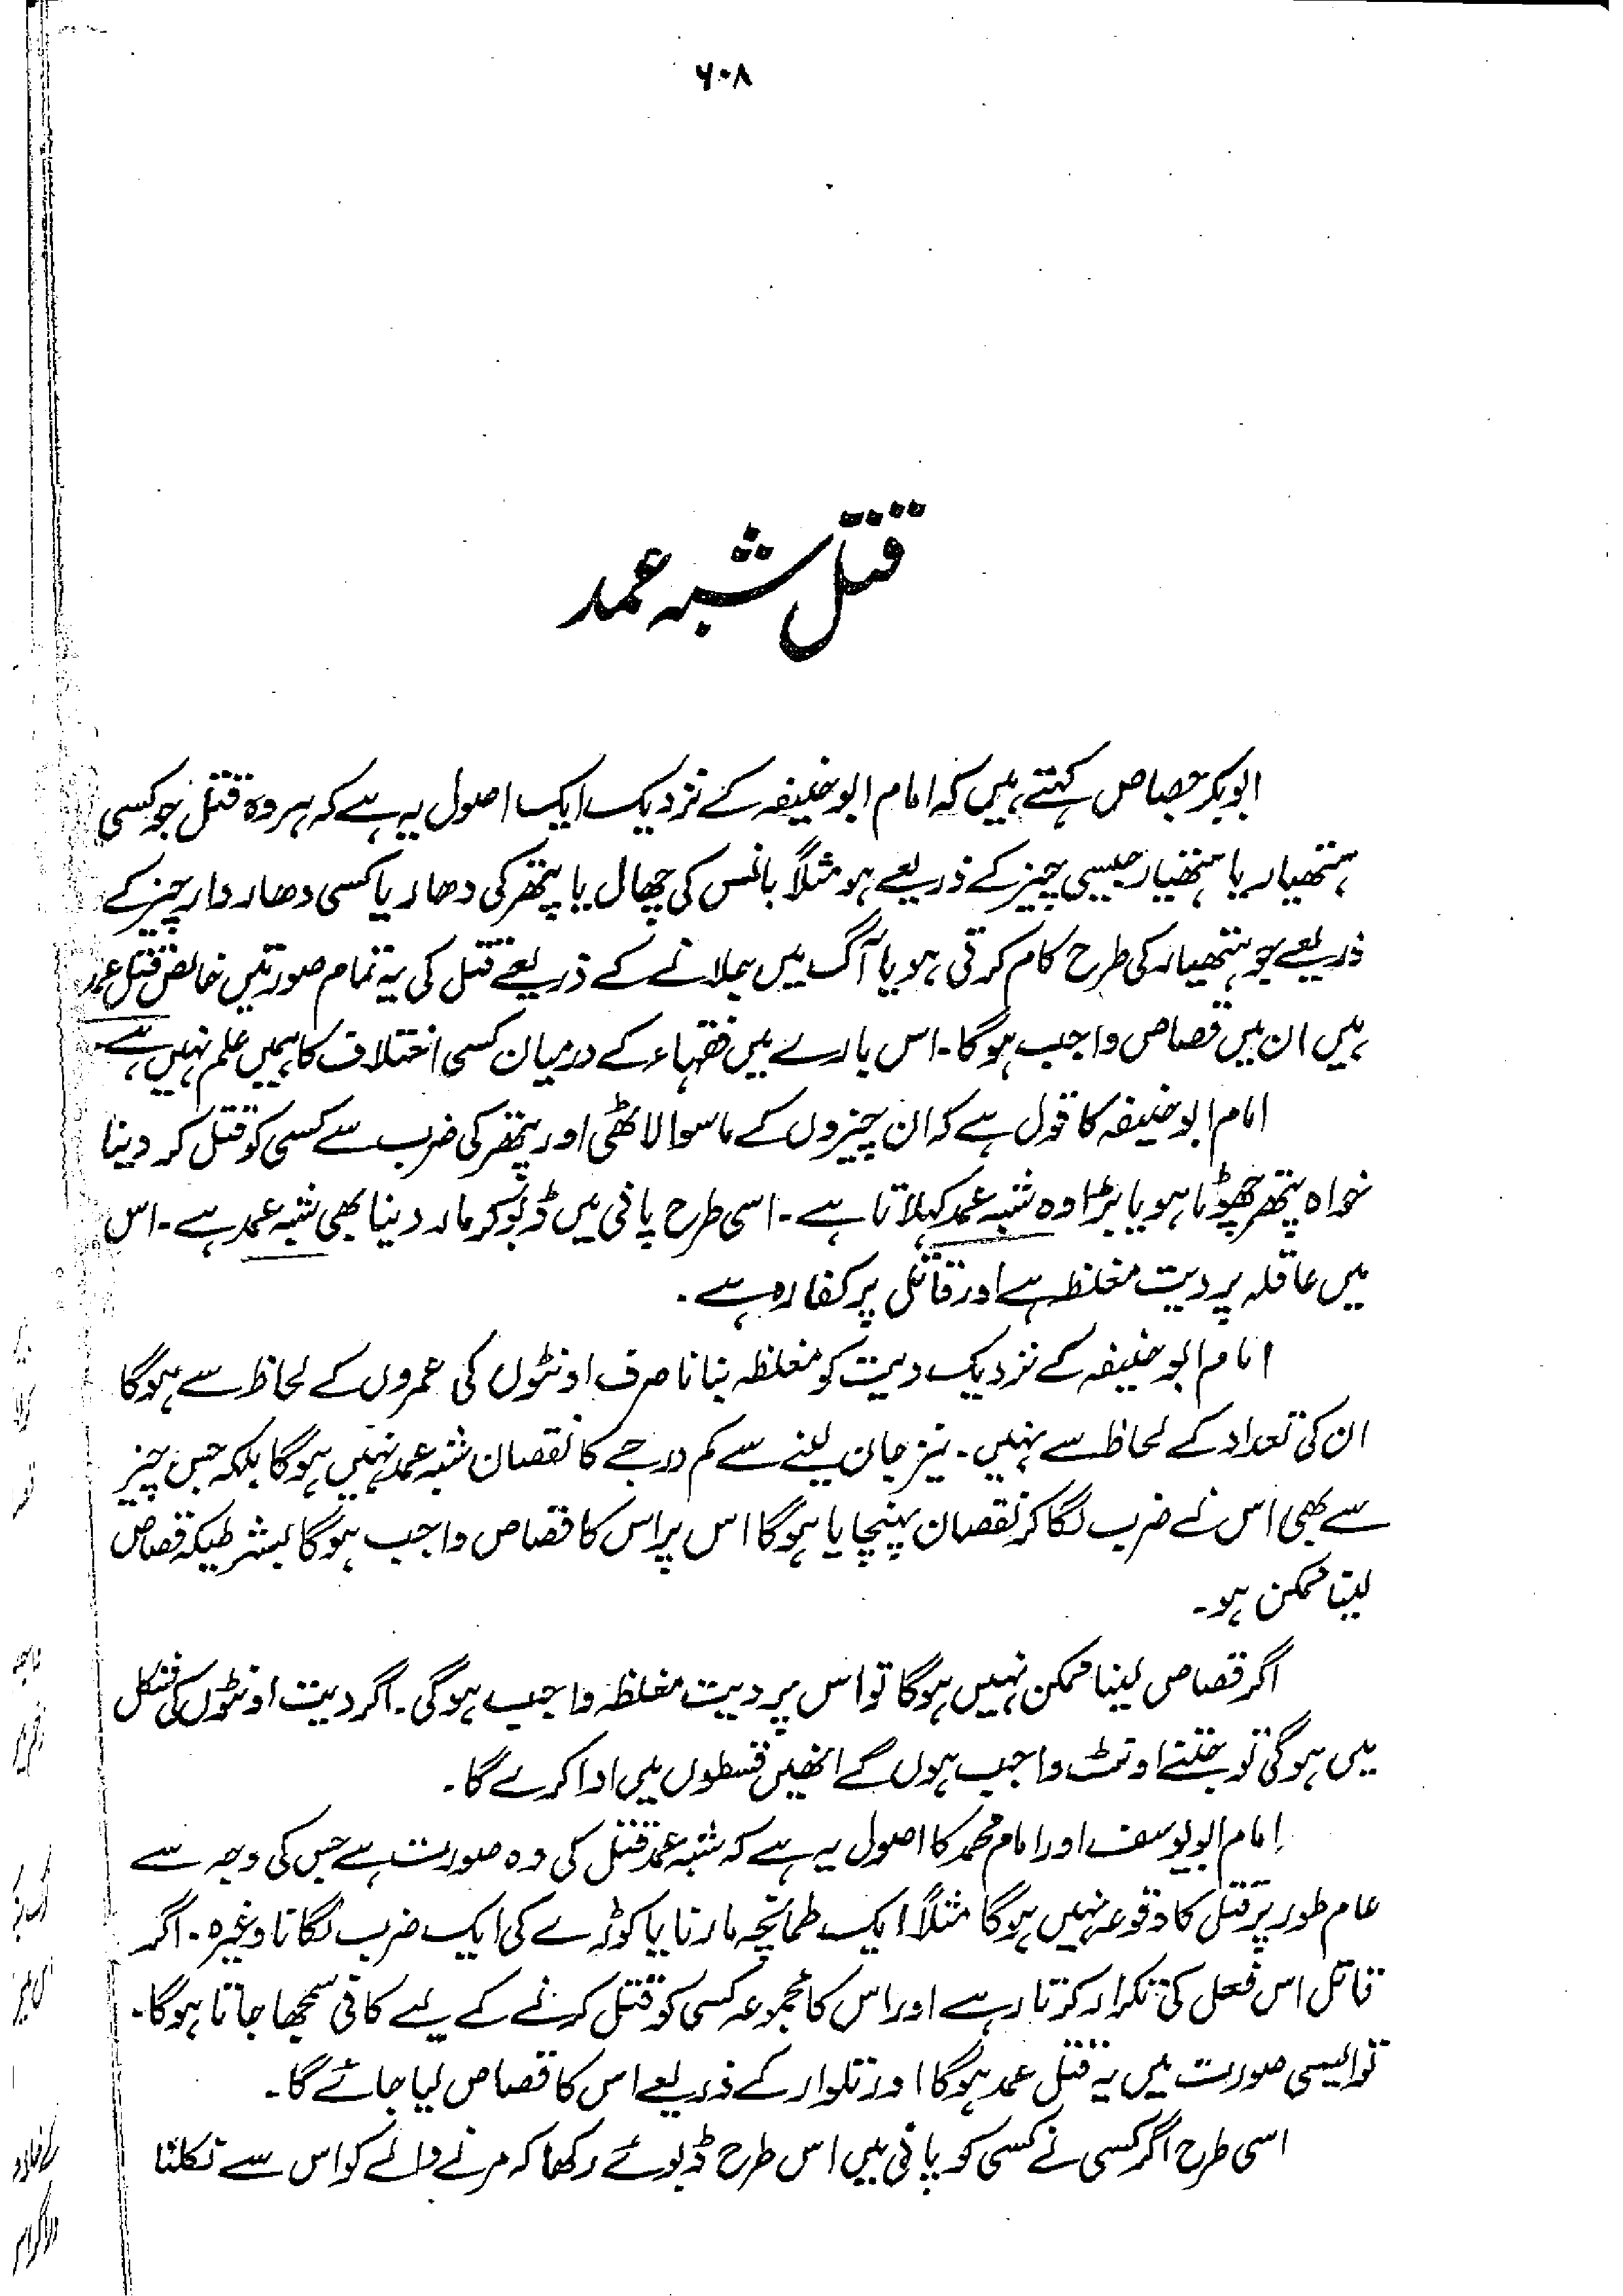 ۶۰۸
قتل شبہ عمد
ابوبکر جصاص کہتے ہیں کہ امام ابو حنیفہ کے نزدیک ایک اصول یہ ہے کہ ہر وہ قتل جو کسی
ہتھیار یا ہتھیار جیسی چیز کے ذریعے ہو مثلاً بانس کی چھال یا پتھر کی دھار یا کسی دھار دار چیز کے
ذریعے جو ہتھیار کی طرح کام کرتی ہو یا آگ میں جلانے کے ذریعے قتل کی یہ تمام صورتیں خالص قتل عمد
ہیں ان میں قصاص واجب ہوگا۔ اس بارے میں فقہاء کے درمیان کسی اختلاف کا ہمیں علم نہیں ہے۔
امام ابو حنیفہ کا قول ہے کہ ان چیزوں کے ماسوا لاٹھی اور پتھر کی ضرب سے کسی کو قتل کر دینا
خواہ پتھر چھوٹا ہو یا بڑا وہ شبہ عمد کہلاتا ہے۔ اسی طرح پانی میں ڈبو کر مار دینا بھی شبہ عمد ہے۔ اس
میں عاقلہ پر دیت مغلظہ ہے اور قاتل پر کفارہ ہے۔
امام ابو حنیفہ کے نزدیک دیت کو مغلظہ بنانا صرف اونٹوں کی عمروں کے لحاظ سے ہوگا
ان کی تعداد کے لحاظ سے نہیں۔ نیز جان لینے سے کم درجے کا نقصان شبہ عمد نہیں ہوگا بلکہ جس چیز
سے بھی اس نے ضرب لگا کر نقصان پہنچایا ہوگا اس پر اس کا قصاص واجب ہوگا بشرطیکہ قصاص
لینا ممکن ہو۔
اگر قصاص لینا ممکن نہیں ہوگا تو اس پر دیت مغلظہ واجب ہوگی۔ اگر دیت اونٹوں کی شکل
میں ہوگی تو جتنے اونٹ واجب ہوں گے انھیں قسطوں میں ادا کرے گا۔
امام ابو یوسف اور امام محمد کا اصول یہ ہے کہ شبہ عمد قتل کی وہ صورت ہے جس کی وجہ سے
عام طور پر قتل کا وقوعہ نہیں ہوگا مثلاً ایک طمانچہ مارنا یا کوڑے کی ایک ضرب لگانا وغیرہ۔ اگر
قاتل اس فعل کی تکرار کرتا رہے اور اس کا مجموعہ کسی کو قتل کرنے کے لیے کافی سمجھا جاتا ہوگا۔
تو ایسی صورت میں یہ قتل عمد ہوگا اور تلوار کے ذریعے اس کا قصاص لیا جائے گا۔
اسی طرح اگر کسی نے کسی کو پانی میں اس طرح ڈبوئے رکھا کہ مرنے والے کو اس سے نکلنا